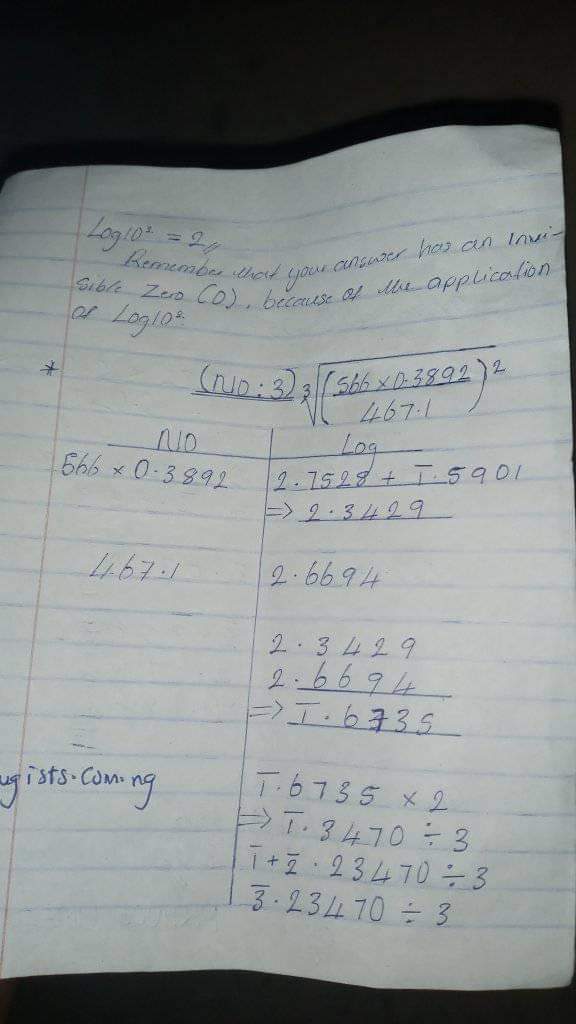 Log10² = 2,,
Remember that your answer has an Invi-
sible Zero (0), because of the application
of Log10².
* (NO:3) ³√(566 x 0.3892 / 467.1)²
NO Log
566 x 0.3892 2.7528 + 1̅.5901
=> 2.3429
467.1 2.6694
2.3429
2.6694
=> 1̅.6735
ugists.com.ng
1̅.6735 x 2
=> 1̅.3470 ÷ 3
1̅+2̅.23470 ÷ 3
3̅.23470 ÷ 3